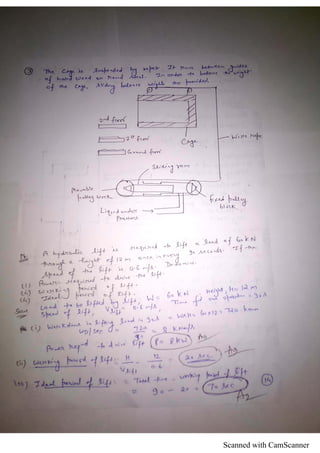 ③ The Cage is Suspended by ropes. It runs between guides
of hard wood or round steel. In order to balance wt weight
of the cage, sliding balance weight are provided.
2nd floor
1st floor
Ground floor
Cage
Wire rope
Sliding ram
Movable
pulley block
Fixed pulley
block
Liquid under
Pressure
A hydraulic lift is required to lift a load of 60 kN
through a height of 12 m once in every 90 seconds. If the
speed of the lift is 0.6 m/s. Determine
(i) Power required to drive the lift.
(ii) Working period of lift.
(iii) Ideal period of lift.
Load to be lifted by lift, W = 60 kN Height, H = 12 m
Speed of lift, Vlift 0.6 m/s, Time for one operation = 90 s
(i) Workdone in lifting load in 90s = W×H = 60×12 = 720 kNm
WD/sec = 720/90 = 8 kNm/s
Power reqd to drive lift P = 8 kW Ans
(ii) Working period of lift = H/Vlift = 12/0.6 = 20 sec Ans
(iii) Ideal period of lift = Total time - working period of lift
= 90 - 20 = 70 sec Ans
Scanned with CamScanner